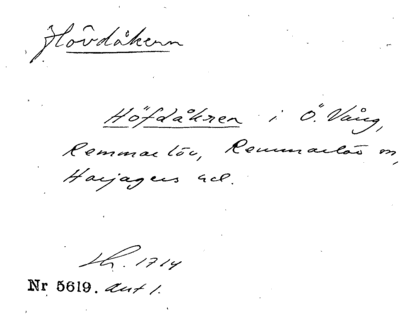 Hövdåkern
Höfdåkren i Ö. Vång,
Remmarlöv, Remmarlöv sn,
Harjagers hd.
Lh. 1714
Nr 5619. Akt 1.